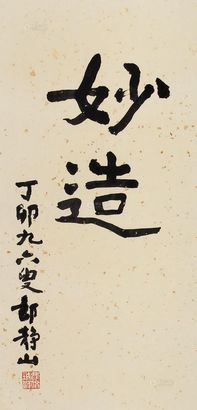 妙造
丁卯九六叟郎静山